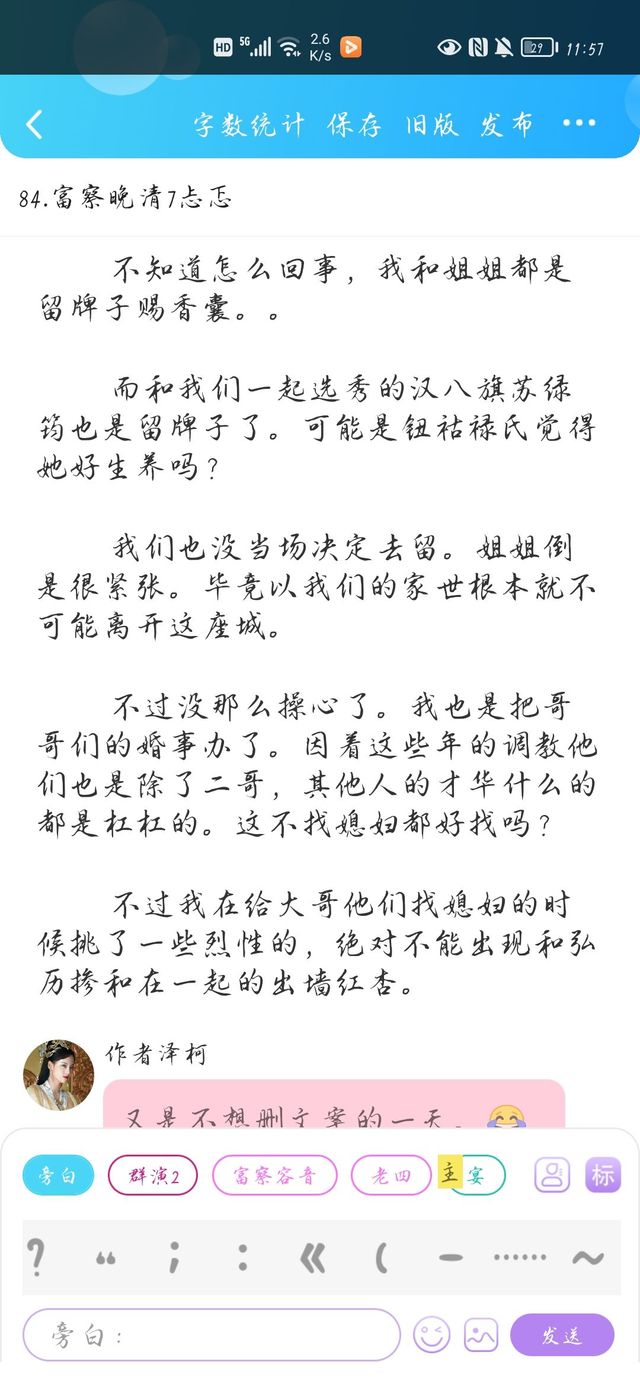 HD 5G 2.6 K/s 29 11:57
字数统计 保存 旧版 发布 ···
84.富察晚清7忐忑
不知道怎么回事，我和姐姐都是
留牌子赐香囊。。
而和我们一起选秀的汉八旗苏绿
筠也是留牌子了。可能是钮祜禄氏觉得
她好生养吗？
我们也没当场决定去留。姐姐倒
是很紧张。毕竟以我们的家世根本就不
可能离开这座城。
不过没那么操心了。我也是把哥
哥们的婚事办了。因着这些年的调教他
们也是除了二哥，其他人的才华什么的
都是杠杠的。这不找媳妇都好找吗？
不过我在给大哥他们找媳妇的时
候挑了一些烈性的，绝对不能出现和弘
历掺和在一起的出墙红杏。
作者泽柯
又是不想删文案的一天。😂
旁白 群演2 富察容音 老四 主 宴 标
？ “ ； ： 《 （ — …… ～
旁白： 发送